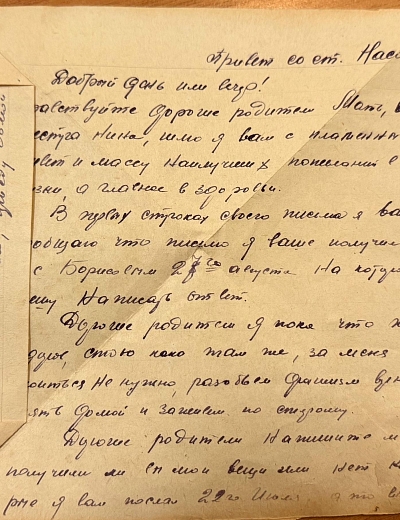 Привет со ст. Насо
Добрый день или вечер!
равствуйте дорогие родители Мать,
естра Нина, шлю я вам с пламенны
ивет и массу наилучших пожеланий в
зни, а главное в здоровьи.
В первых строках своего письма я ва
ообщаю что письмо я ваше получил
с Борисовым 27го августа на котор
ешу написать ответ.
Дорогие родители я пока что ж
стою пока там же, за меня
оиться не нужно, разобьем фашизм
ять домой и заживем по старому.
Дорогие родители напишите м
получили ли вы мои вещи или нет
рые я вам послал 22го июля а то